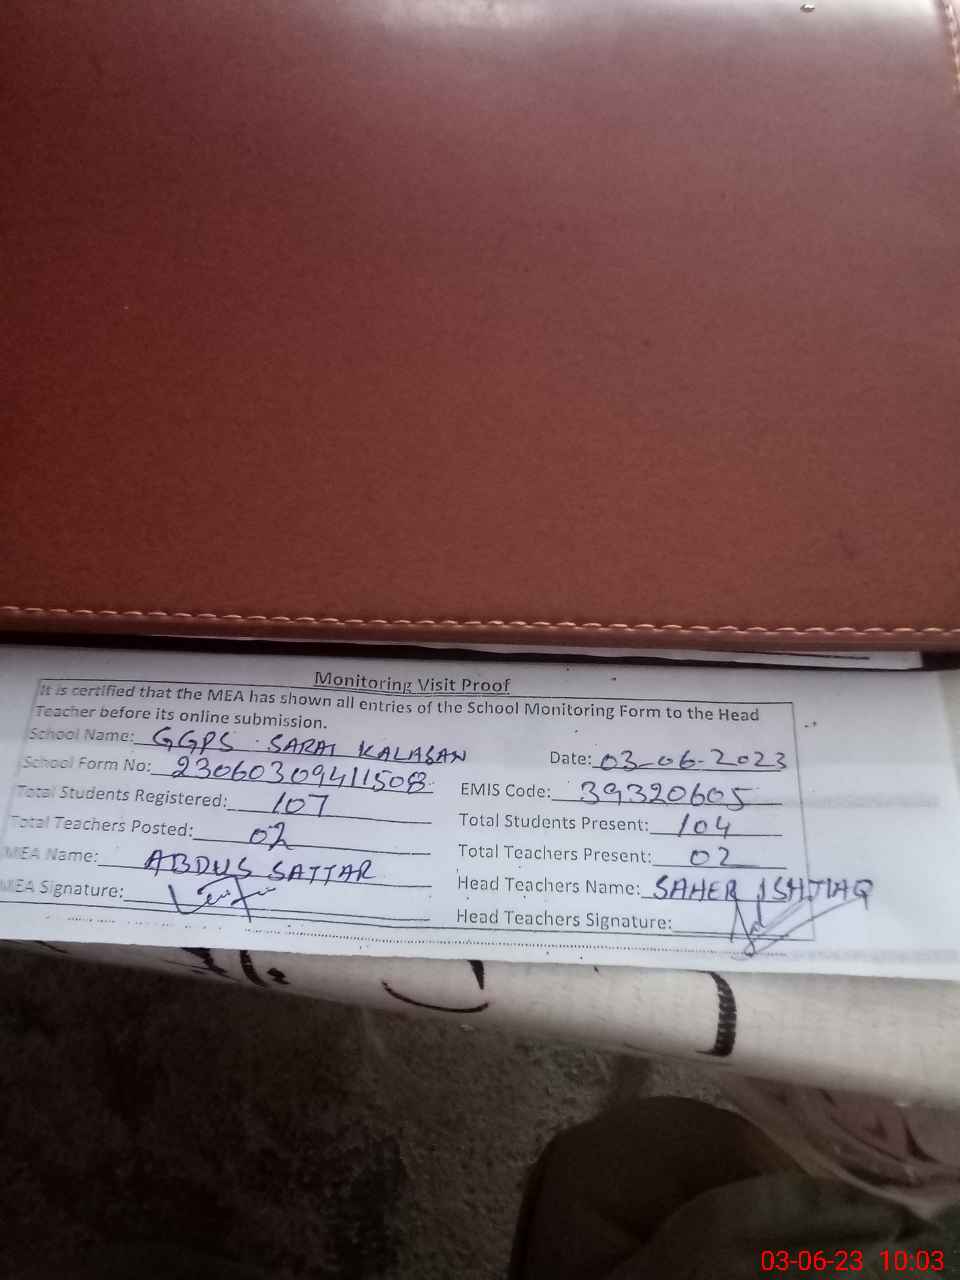 Monitoring Visit Proof
It is certified that the MEA has shown all entries of the School Monitoring Form to the Head
Teacher before its online submission.
School Name: GGPS SARAI KALASAN Date: 03-06-2023
School Form No: 23060309411508 EMIS Code: 39320605
Total Students Registered: 107 Total Students Present: 104
Total Teachers Posted: 02 Total Teachers Present: 02
MEA Name: ABDUS SATTAR Head Teachers Name: SAHER ISHTIAQ
MEA Signature: Head Teachers Signature:
03-06-23 10:03